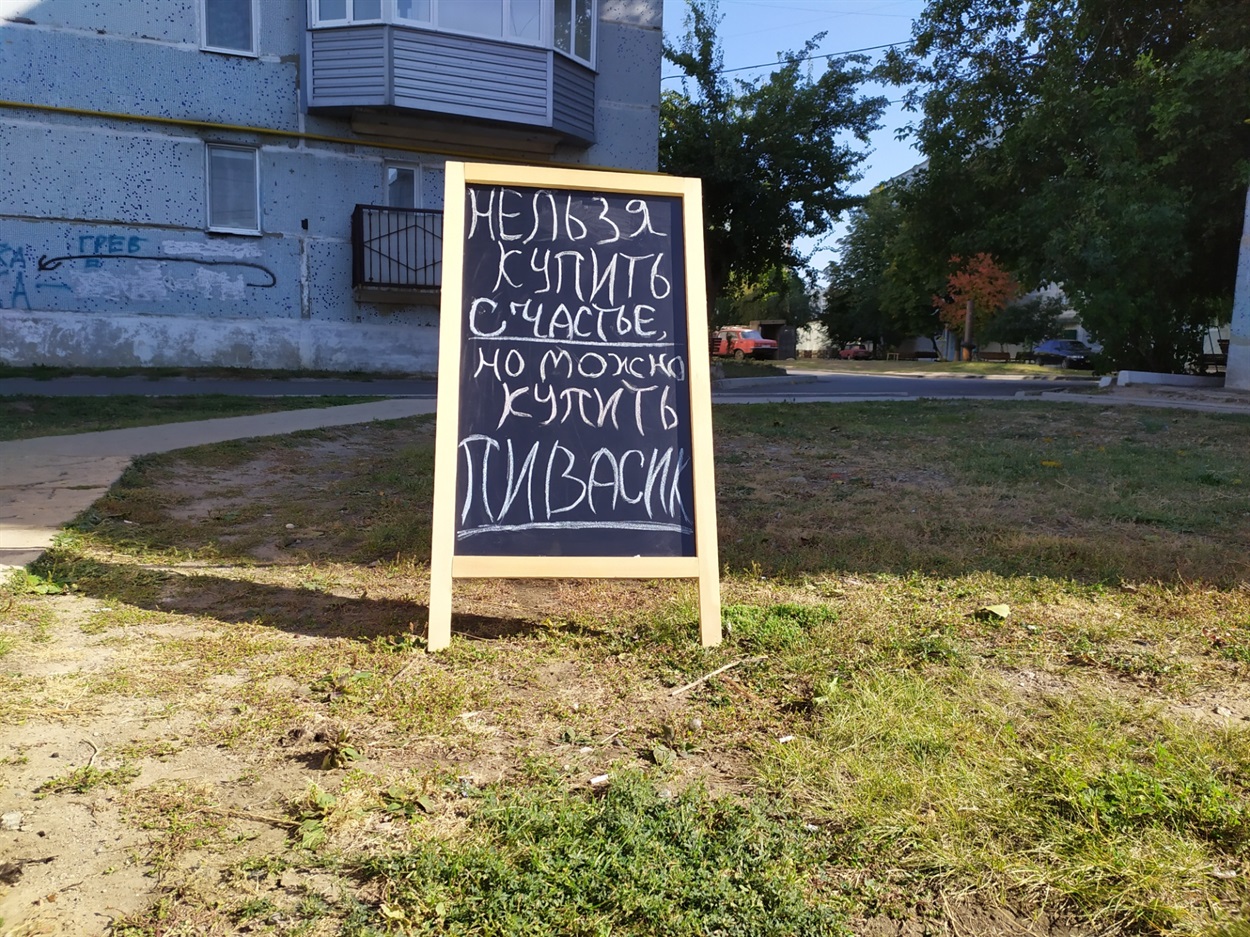 НЕЛЬЗЯ
КУПИТЬ
СЧАСТЬЕ,
НО МОЖНО
КУПИТЬ
ПИВАСИК
ГРЕВ